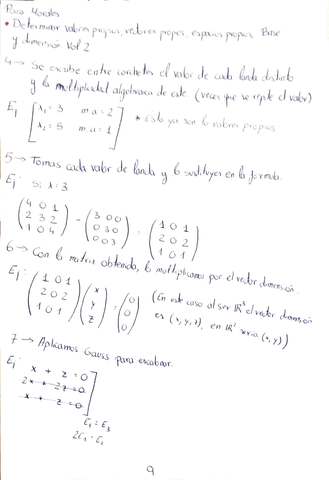 • Determinar valores propios, vectores propios, espacios propios, Base
y dimension Vol 2
4 → Se escribe entre corchetes el valor de cada landa distinto
y la multiplicidad algebraica de este. (veces que se repite el valor)
Ej: [ λ₁ = 3 m.a = 2
λ₂ = 5 m.a = 1 ] * Esto ya son los valores propios
5 → Tomas cada valor de landa y lo sustituyes en la formula.
Ej: Si λ = 3
(4 0 1 / 2 3 2 / 1 0 4) - (3 0 0 / 0 3 0 / 0 0 3) = (1 0 1 / 2 0 2 / 1 0 1)
6 → Con la matriz obtenida, lo multiplicamos por el vector dimensión.
Ej: (1 0 1 / 2 0 2 / 1 0 1) (x / y / z) = (0 / 0 / 0) (En este caso al ser ℝ³ el vector dimensión
es (x, y, z), en ℝ² sería (x, y))
7 → Aplicamos Gauss para escalonar.
Ej: x + z = 0
2x + 2z = 0
x + z = 0
E₁ = E₃
2E₁ = E₂
9